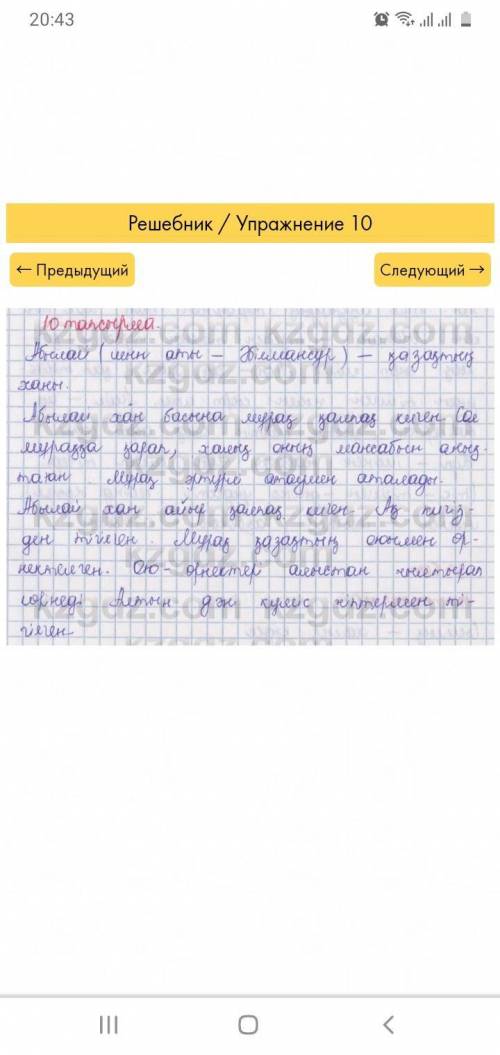 20:43
Решебник / Упражнение 10
← Предыдущий
Следующий →
10 тапсырма.
Абылай (шын аты – Әбілмансұр) – қазақтың
ханы.
Абылай хан басына мұрақ қалпақ киген. Сол
мұраққа қарап, халық оның мансабын анық-
таған. Мұрақ әртүрлі атаумен аталады.
Абылай хан айыр қалпақ киген. Ақ киіз-
ден тігілген. Мұрақ қазақтың оюымен өр-
нектелген. Ою-өрнектер алыстан жылтырап
көрінеді. Алтын дән күміс жіптермен ті-
гілген.
kzgdz.com